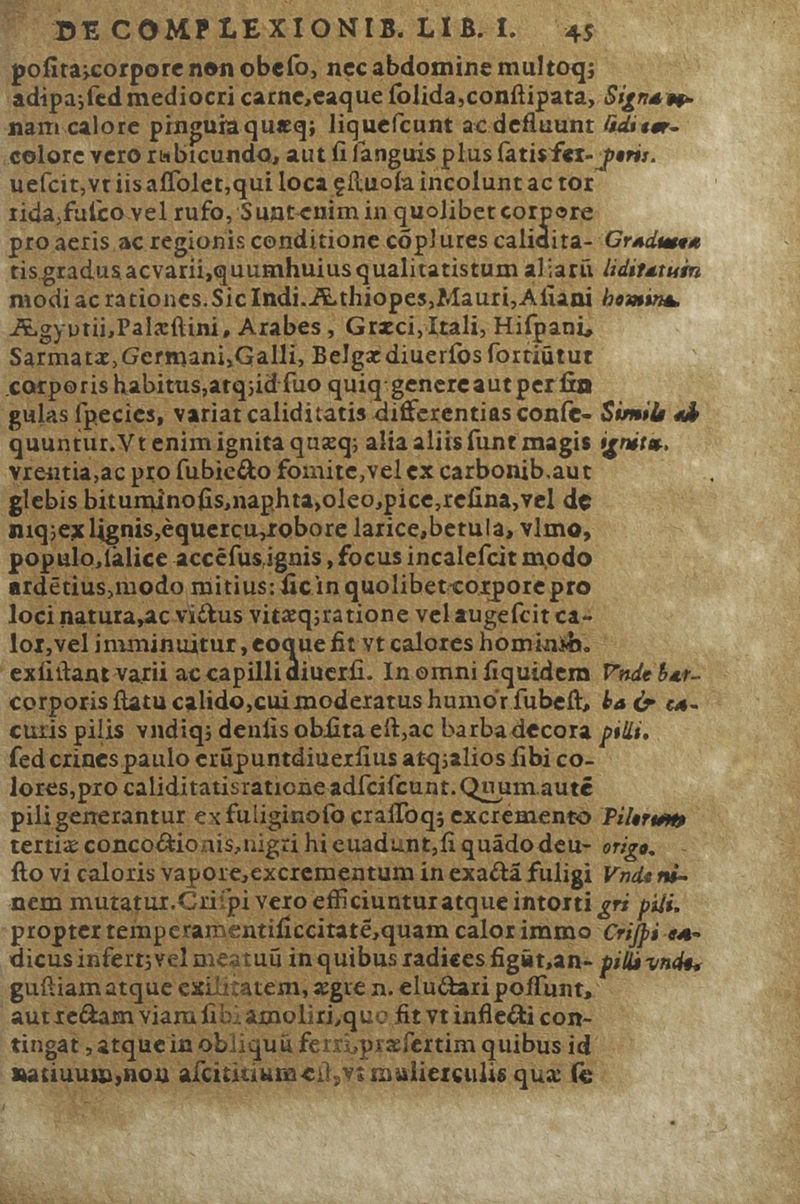 DE COMPLEXIONIB. LIB. I. 45
posita;corpore non obeso, nec abdomine multoq;
adipa;sed mediocri carne,eaque solida,constipata, Signa
nam calore pinguia quæq; liquescunt ac defluunt lidi cor-
colore vero rubicundo, aut si sanguis plus satis fer- poris.
uescit,vt iis assolet,qui loca ęstuosa incolunt ac tor
rida,fusco vel rufo, Sunt enim in quolibet corpore
pro aeris ac regionis conditione cōplures calidita- Gradus ca
tis gradus ac varii,quum huius qualitatis tum aliarū liditatum
modi ac rationes. Sic Indi. Æthiopes,Mauri,Asiani homine.
Ægyptii,Palæstini, Arabes, Græci,Itali, Hispani,
Sarmatæ,Germani,Galli, Belgæ diuersos sortiūtur
corporis habitus,atq;id suo quiq; genere aut per sin
gulas species, variat caliditatis differentias conse- Simile ab
quuntur.Vt enim ignita quæq; alia aliis sunt magis ignita.
vrentia,ac pro subiecto fomite,vel ex carbonib.aut
glebis bituminosis,naphta,oleo,pice,resina,vel de
niq;ex lignis,è quercu,robore larice,betula, vlmo,
populo,salice accēsus ignis, focus incalescit modo
ardētius,modo mitius: sic in quolibet corpore pro
loci natura,ac victus vitæq;ratione vel augescit ca-
lor,vel imminuitur, eoque fit vt calores hominib.
existant varii ac capilli diuersi. In omni siquidem Vnde bar-
corporis statu calido,cui moderatus humor subest, ba & ca-
curis pilis vndiq; densis obsita est,ac barba decora pilli.
sed crines paulo erūpunt diuersius atq;alios sibi co-
lores,pro caliditatis ratione adsciscunt. Quum autē
pili generantur ex fuliginoso crassoq; excremento Pilorum
tertiæ concoctionis,nigri hi euadunt,si quādo deu- origo.
sto vi caloris vapore,excrementum in exactā fuligi Vnde ni-
nem mutatur.Crispi vero efficiuntur atque intorti gri pili.
propter temperamenti siccitatē,quam calor immo Crispi ca-
dicus infert;vel meatuū in quibus radices figūt,an- pilli vnde,
gustiam atque exilitatem, ægre n. eluctari possunt,
aut rectam viam sibi amoliri,quo fit vt inflecti con-
tingat, atque in obliquū ferri,præsertim quibus id
natiuum,non ascititium est,vt mulierculis quæ se